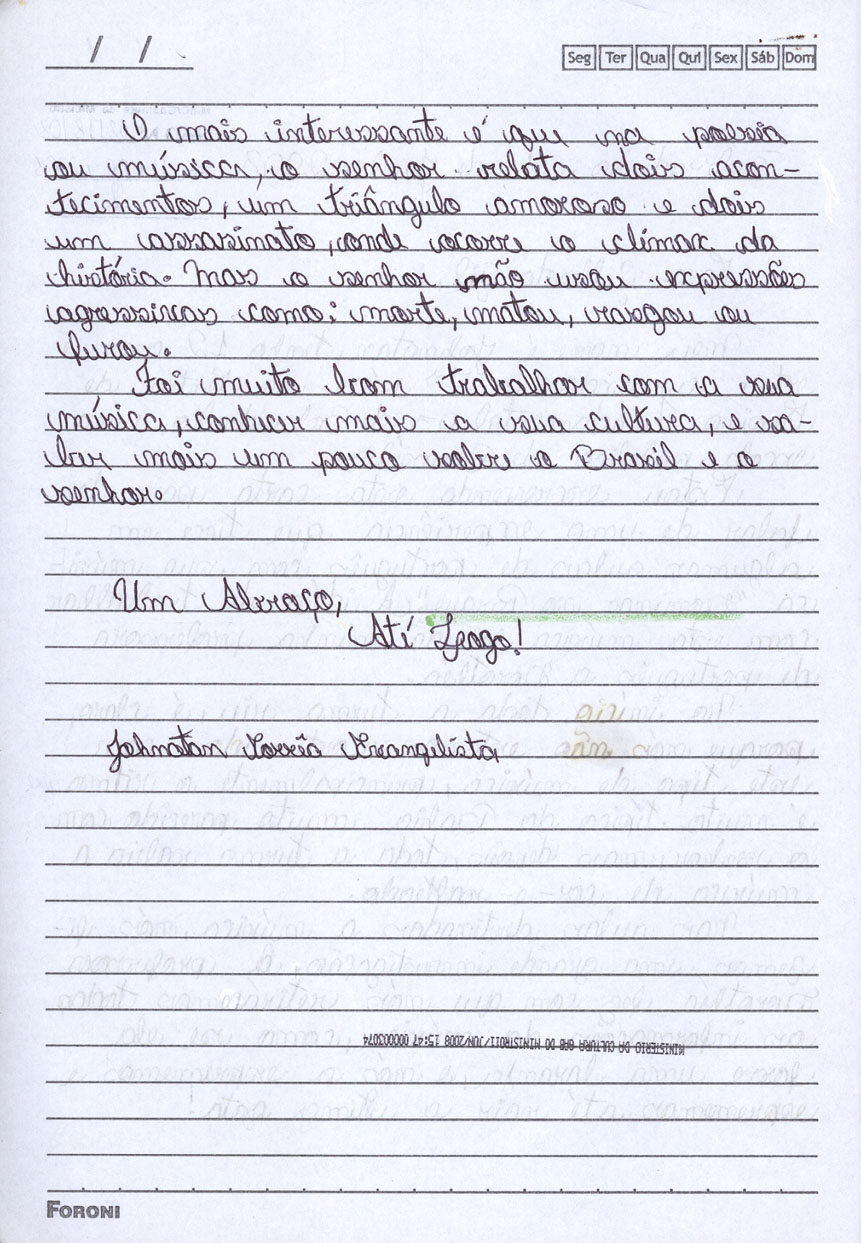 / /
Seg Ter Qua Qui Sex Sáb Dom
O mais interessante é que na poesia
ou música, o senhor relata dois acon-
tecimentos, um triângulo amoroso e dois
um assassinato, onde ocorre o clímax da
história. Mas o senhor não usou expressões
agressivas como: morte, matou, rasgou ou
furou.
Foi muito bom trabalhar com a sua
música, conhecer mais a sua cultura, e sa-
ber mais um pouco sobre o Brasil e o
senhor.
Um Abraço,
Até Logo!
Johnatan Evangelista
MINISTERIO DA CULTURA GAB DO MINISTRO11/JUN/2008 15:47 000003074
FORONI